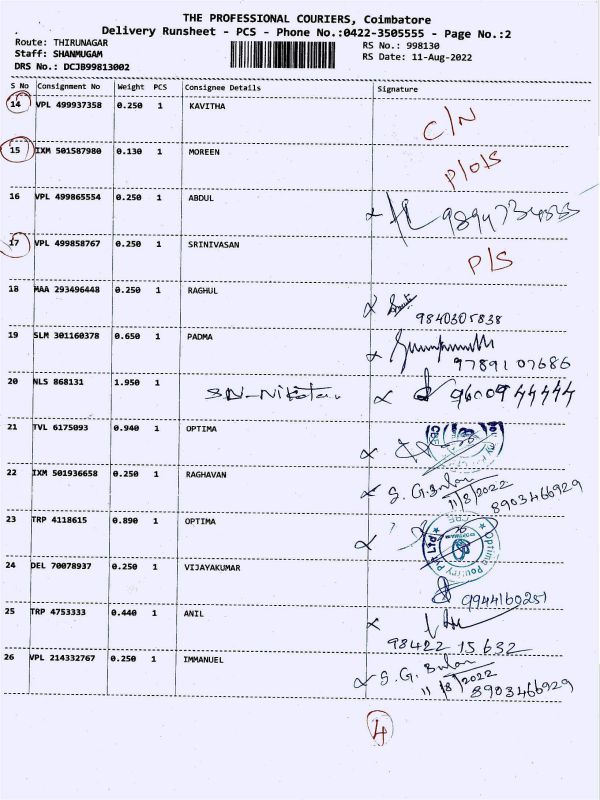 THE PROFESSIONAL COURIERS, Coimbatore
Delivery Runsheet - PCS - Phone No.:0422-3505555 - Page No.:2
Route: THIRUNAGAR
RS No.: 998130
Staff: SHANMUGAM
RS Date: 11-Aug-2022
DRS No.: DCJB99813002
S No Consignment No Weight PCS Consignee Details Signature
14 VPL 499937358 0.250 1 KAVITHA C/N
15 IXM 501587980 0.130 1 MOREEN P/O/S
16 VPL 499865554 0.250 1 ABDUL
17 VPL 499858767 0.250 1 SRINIVASAN P/S
18 MAA 293496448 0.250 1 RAGHUL
9840305838
19 SLM 301160378 0.650 1 PADMA
97891 07686
20 NLS 868131 1.950 1 960094444
21 TVL 6175093 0.940 1 OPTIMA
22 IXM 501936658 0.250 1 RAGHAVAN S. G.
11/8/2022
8903466929
23 TRP 4118615 0.890 1 OPTIMA
Optima Poultry Pvt Ltd
24 DEL 70078937 0.250 1 VIJAYAKUMAR
9944160251
25 TRP 4753333 0.440 1 ANIL
98422 15632
26 VPL 214332767 0.250 1 IMMANUEL S. G.
11/8/2022
8903466929
4